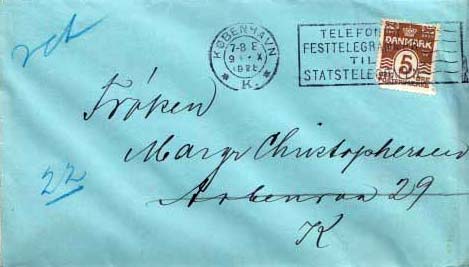 ret
KØBENHAVN
7-8 E
K.
TELEFON
FESTTELEGRA
TIL
STATSTELE
DANMARK
5
Frøken
Margr Christophersen
Aabenraa 29
K
22